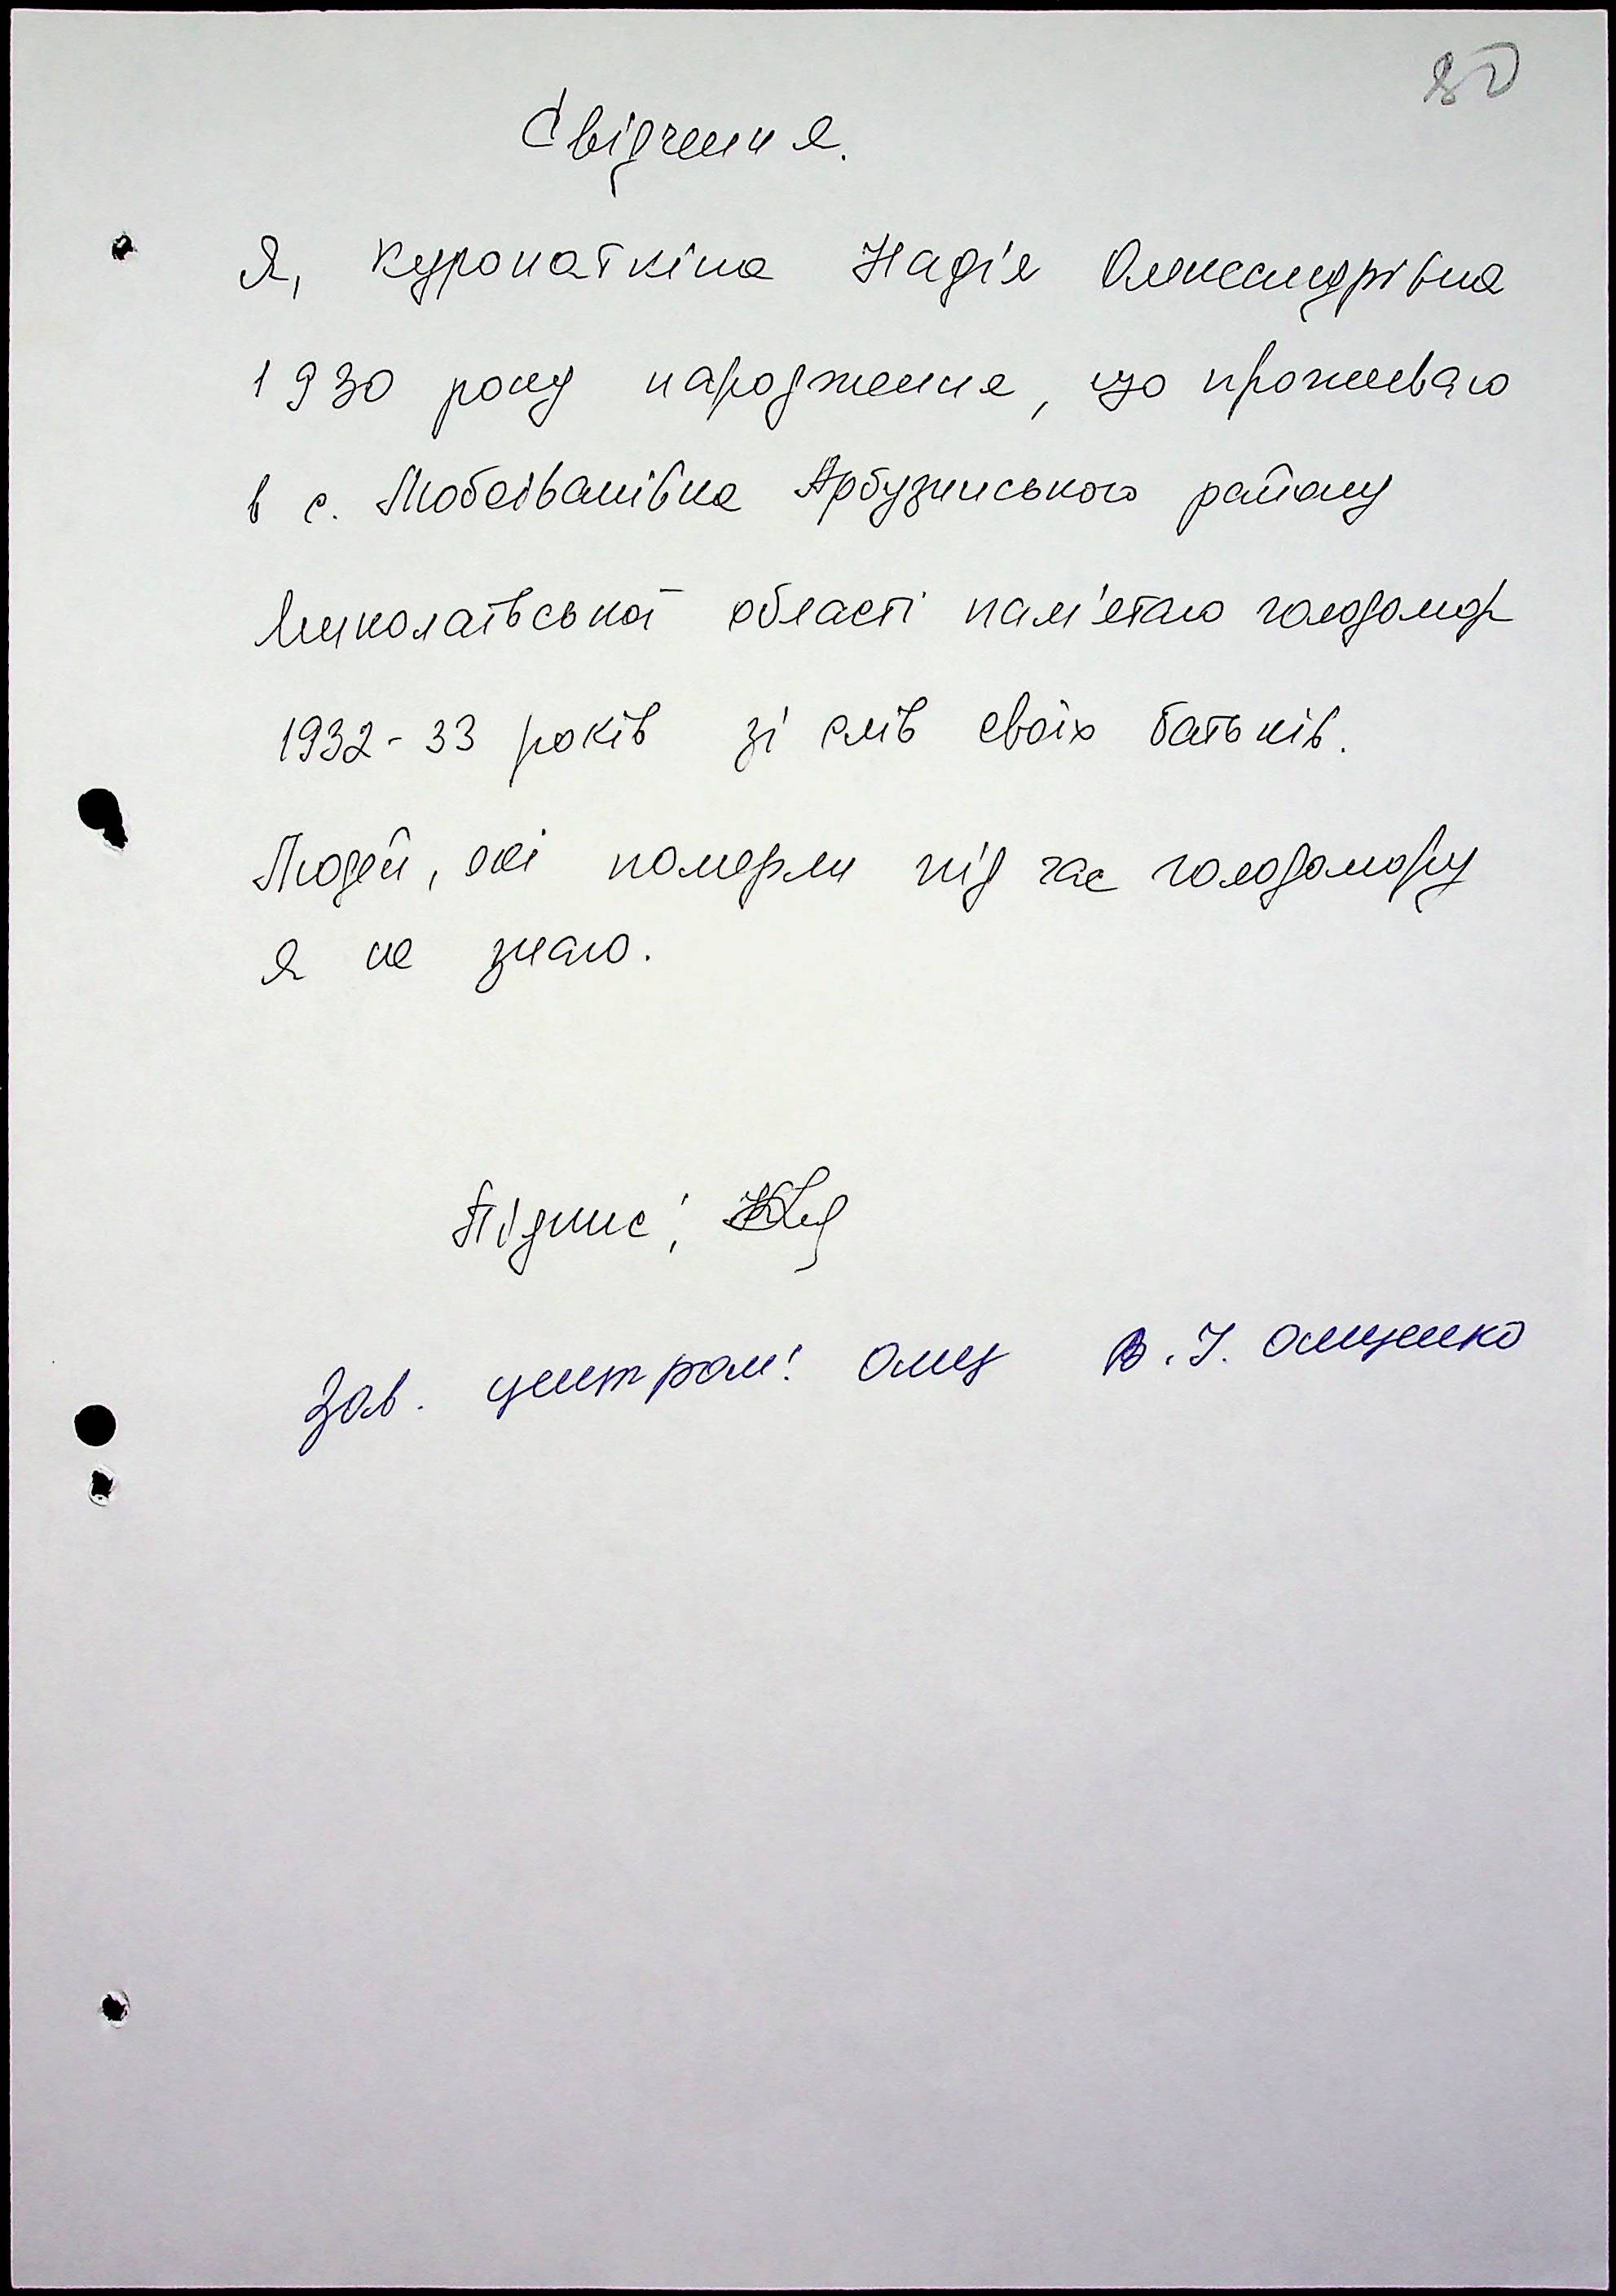 80
Свідчення.
Я, Куропаткіна Надія Олександрівна
1930 року народження, що проживаю
в с. Любоіванівка Арбузинського району
Миколаївської області пам'ятаю голодомор
1932-33 років зі слів своїх батьків.
Людей, які померли під час голодомору
я не знаю.
Підпис:
Зав. центром: В.І. Ощенко